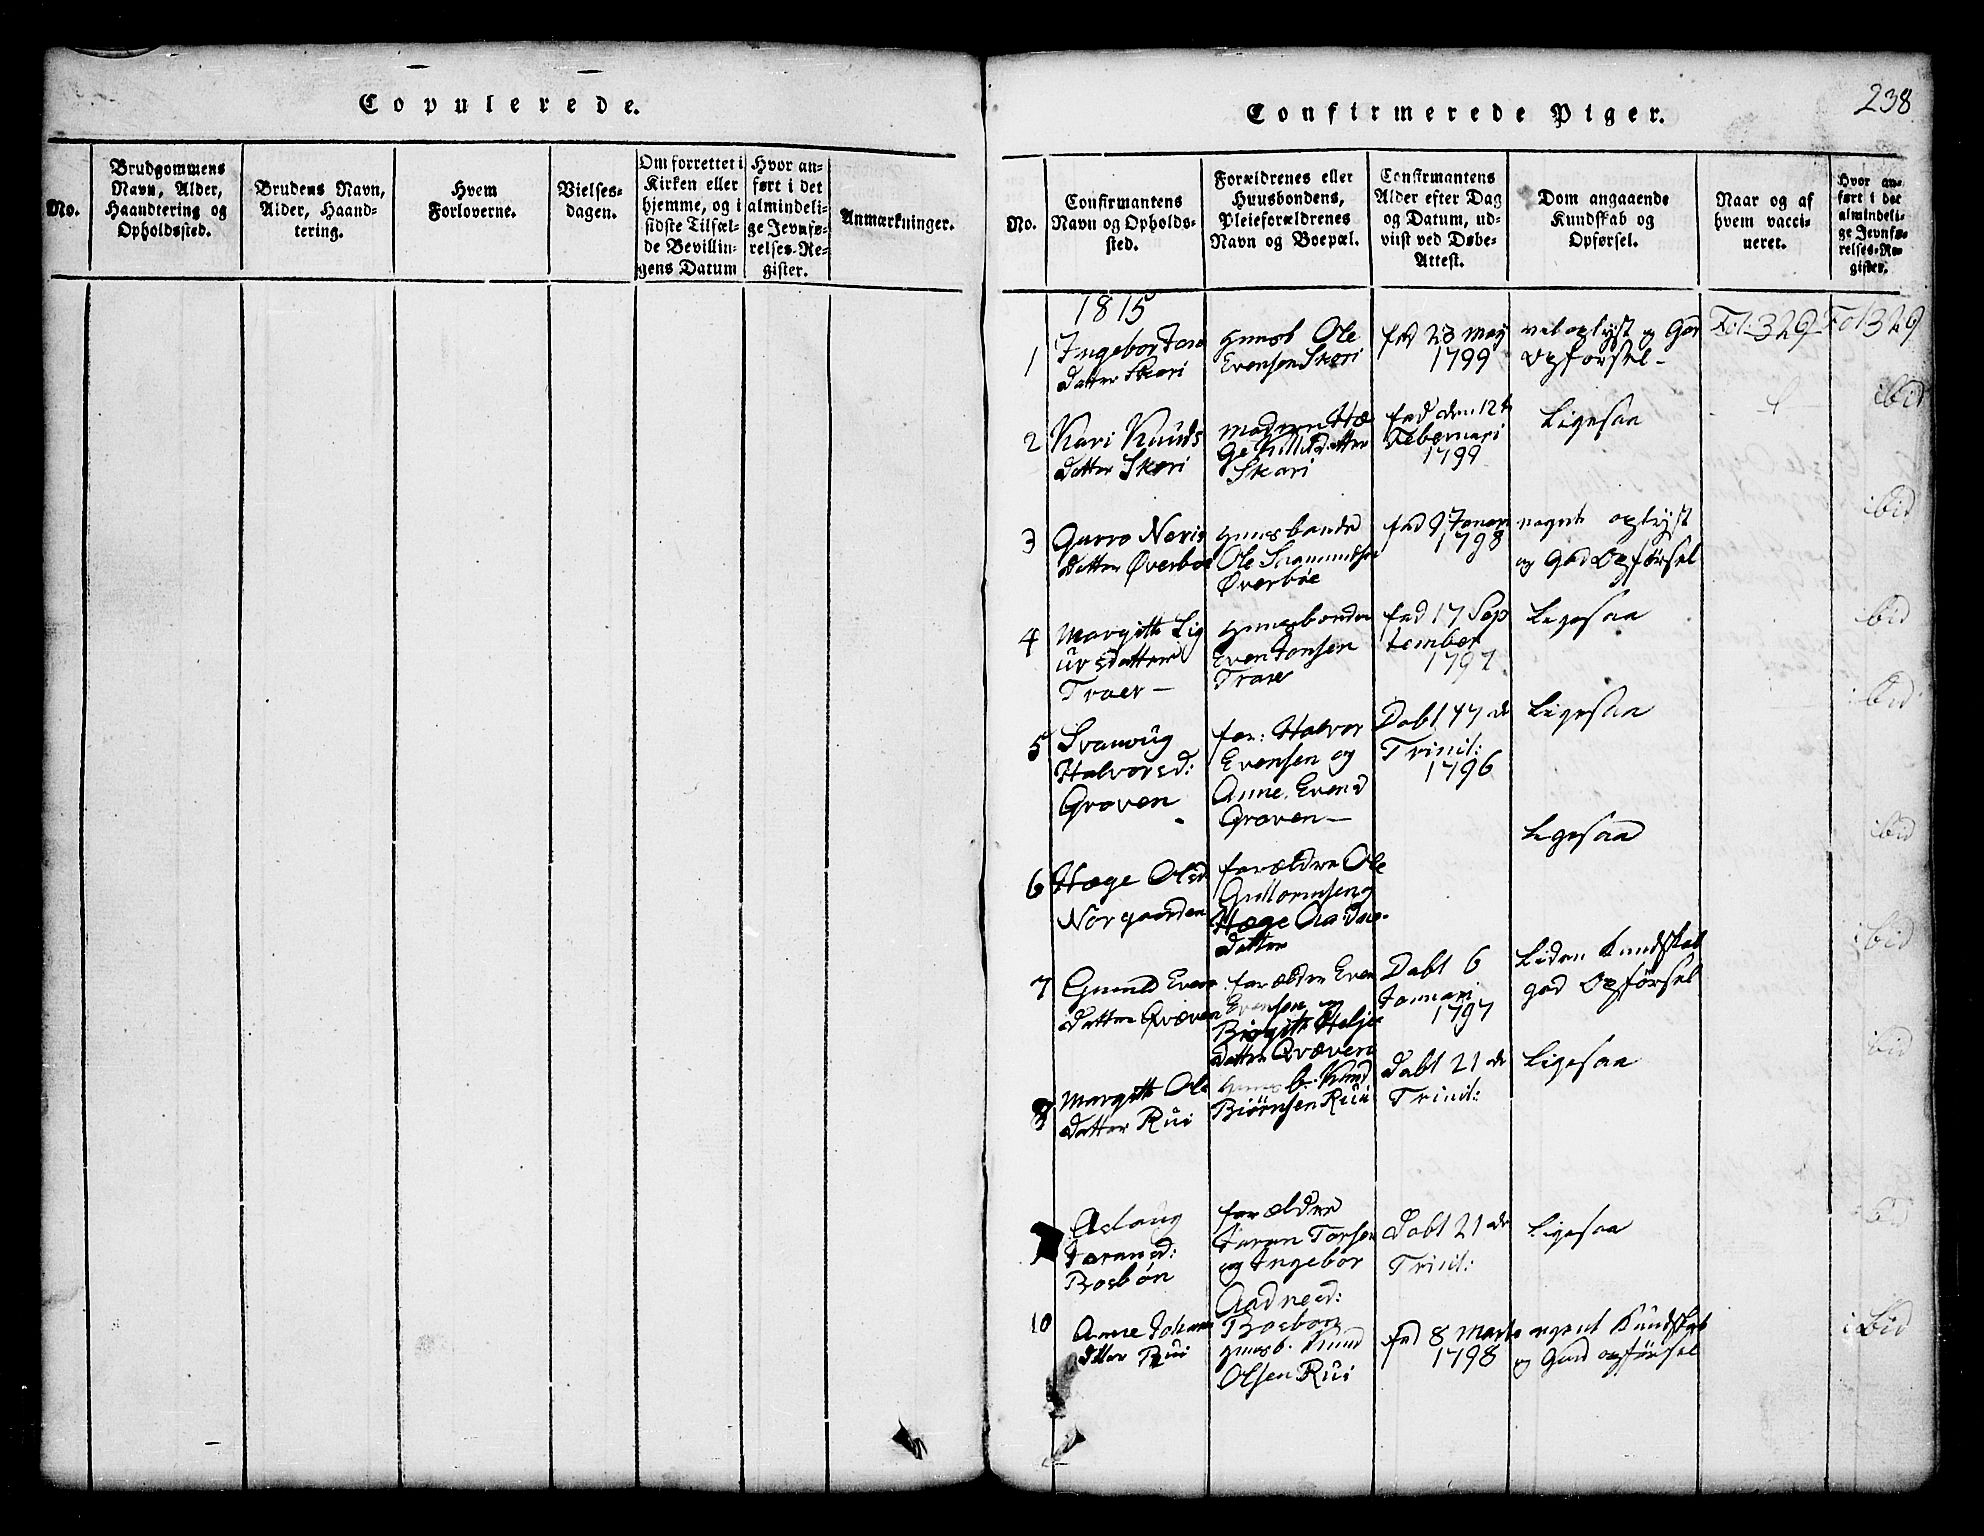 Copulerede.
No.
Brudgommens
Navn, Alder,
Haandtering og
Opholdssted.
Brudens Navn,
Alder, Haand-
tering.
Hvem
Forloverne.
Vielses-
dagen.
Om forrettet i
Kirken eller
hjemme, og i
sidste Tilfæl-
de Bevillin-
gens Datum
Hvor an-
ført i det
almindeli-
ge Jevnfø-
relses-Re-
gister.
Anmærkninger.
238
Confirmerede Piger.
No.
Confirmantens
Navn og Opholds-
sted.
Forældrenes eller
Huusbondens,
Pleieforældrenes
Navn og Boepæl.
Confirmantens
Alder efter Dag
og Datum, ud-
viist ved Døbe-
Attest.
Dom angaaende
Kundskab og
Opførsel.
Naar og af
hvem vacci-
neret.
Hvor an-
ført i det
almindeli-
ge Jevnfø-
relses-Re-
gister.
1815
1
Ingebor
datter Skori
Huusb Ole
Evensen Skori
fød 23 May
1799
vel oplyst og God
Opførsel
Fol 329
Fol 329
2
Kari Knuds
datter Skori
Skori
fød den 12te
Februari
1799
Ligesaa
ibid
3
datter Øverbøe
Huusbonde
Ole
Øverbøe
fød 9 Januari
1798
oplyst
og God Opførsel
ibid
4
Margith
datter
Traer
Huusbonde
Even Jonsen
Traer
fød 17 Sep
tember
1797
Ligesaa
ibid
5
Svanoug
Halvorsd:
Groven
for: Halvor
Evensen og
Anne Evensd
Groven
Døbt 17 de
Trinit:
1796
Ligesaa
ibid
6
Hæge Olsd
Norgaarden
forældre Ole
Hæge
datter
Ligesaa
ibid
7
Gunild Evens
datter Qvæven
forældre Even
Evensen og
Birgith Helje
datter Qvæven
Døbt 6
Januari
1797
Liden Kundskab
god Opførsel
ibid
8
Margith Ols
datter Rui
Huusb: Knud
Biörnsen Rui
Døbt 21 de
Trinit:
Ligesaa
ibid
Aslaug
Bosbøn
forældre
Torsen
og Ingebor
Aadnesd:
Bosbøn
Døbt 21 de
Trinit:
Ligesaa
ibid
10
Anne Johans
dtter Rui
Huusb. Knud
Olsen Rui
fød 8 Marts
1798
Kundskab
og God opførsel
ibid